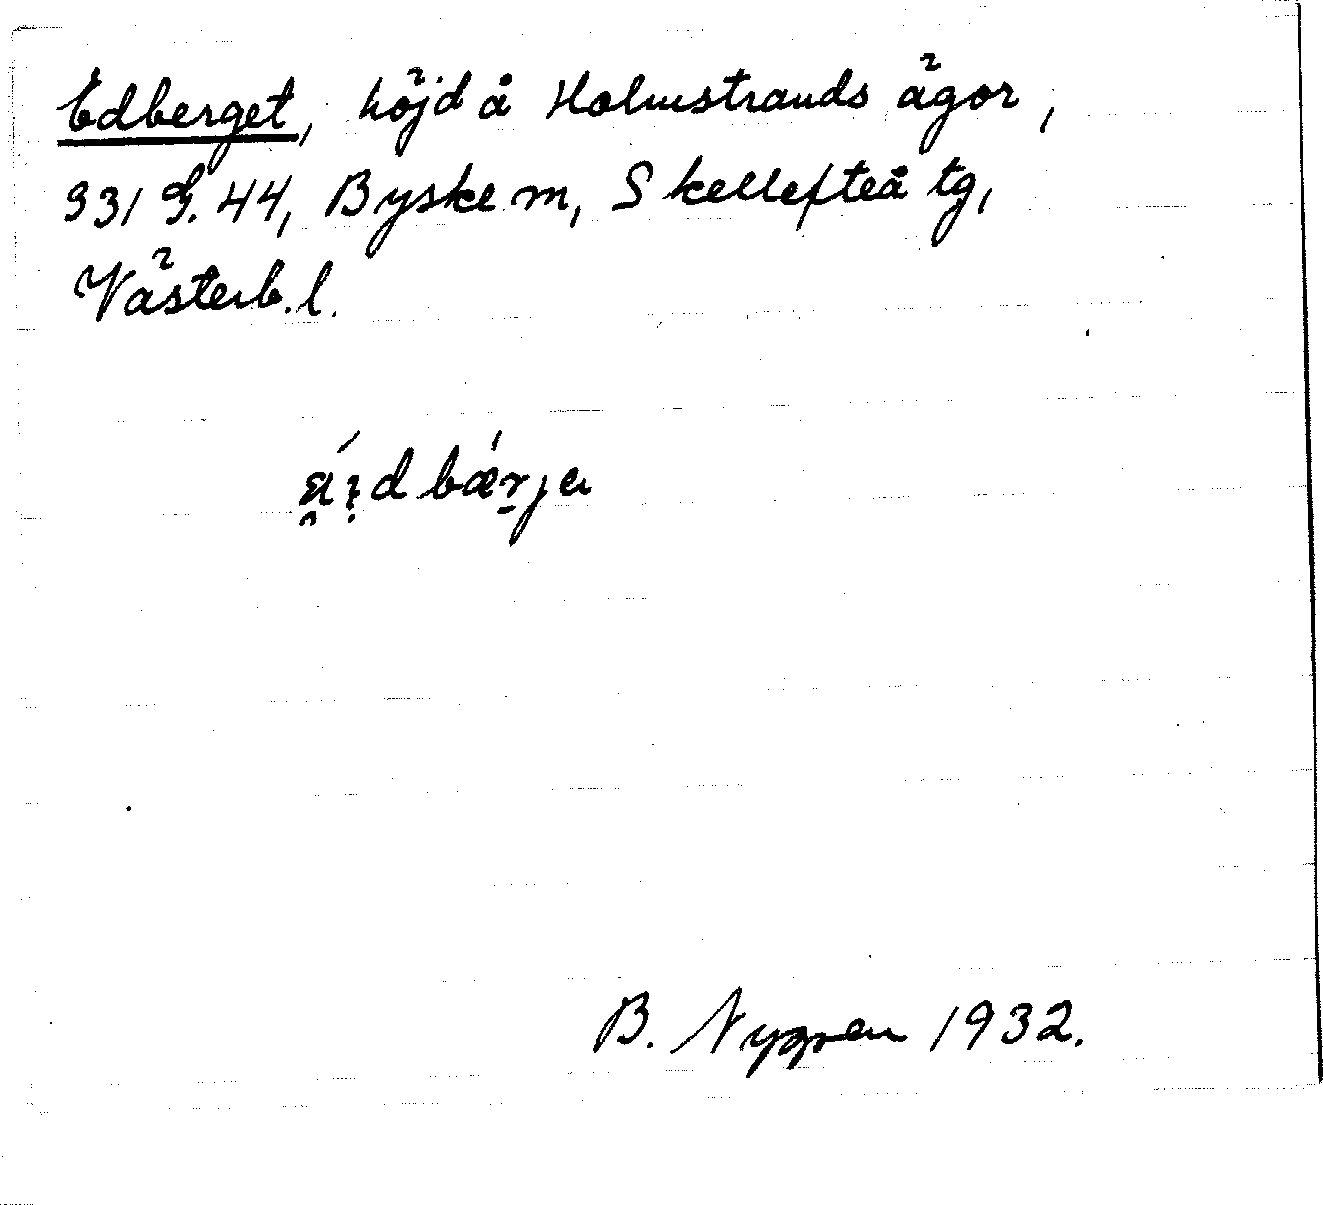 Edberget, höjd å Holmstrands ägor,
331 G. 44, Byske m, Skellefteå tg,
Västerb. l.
B. Nygren 1932.